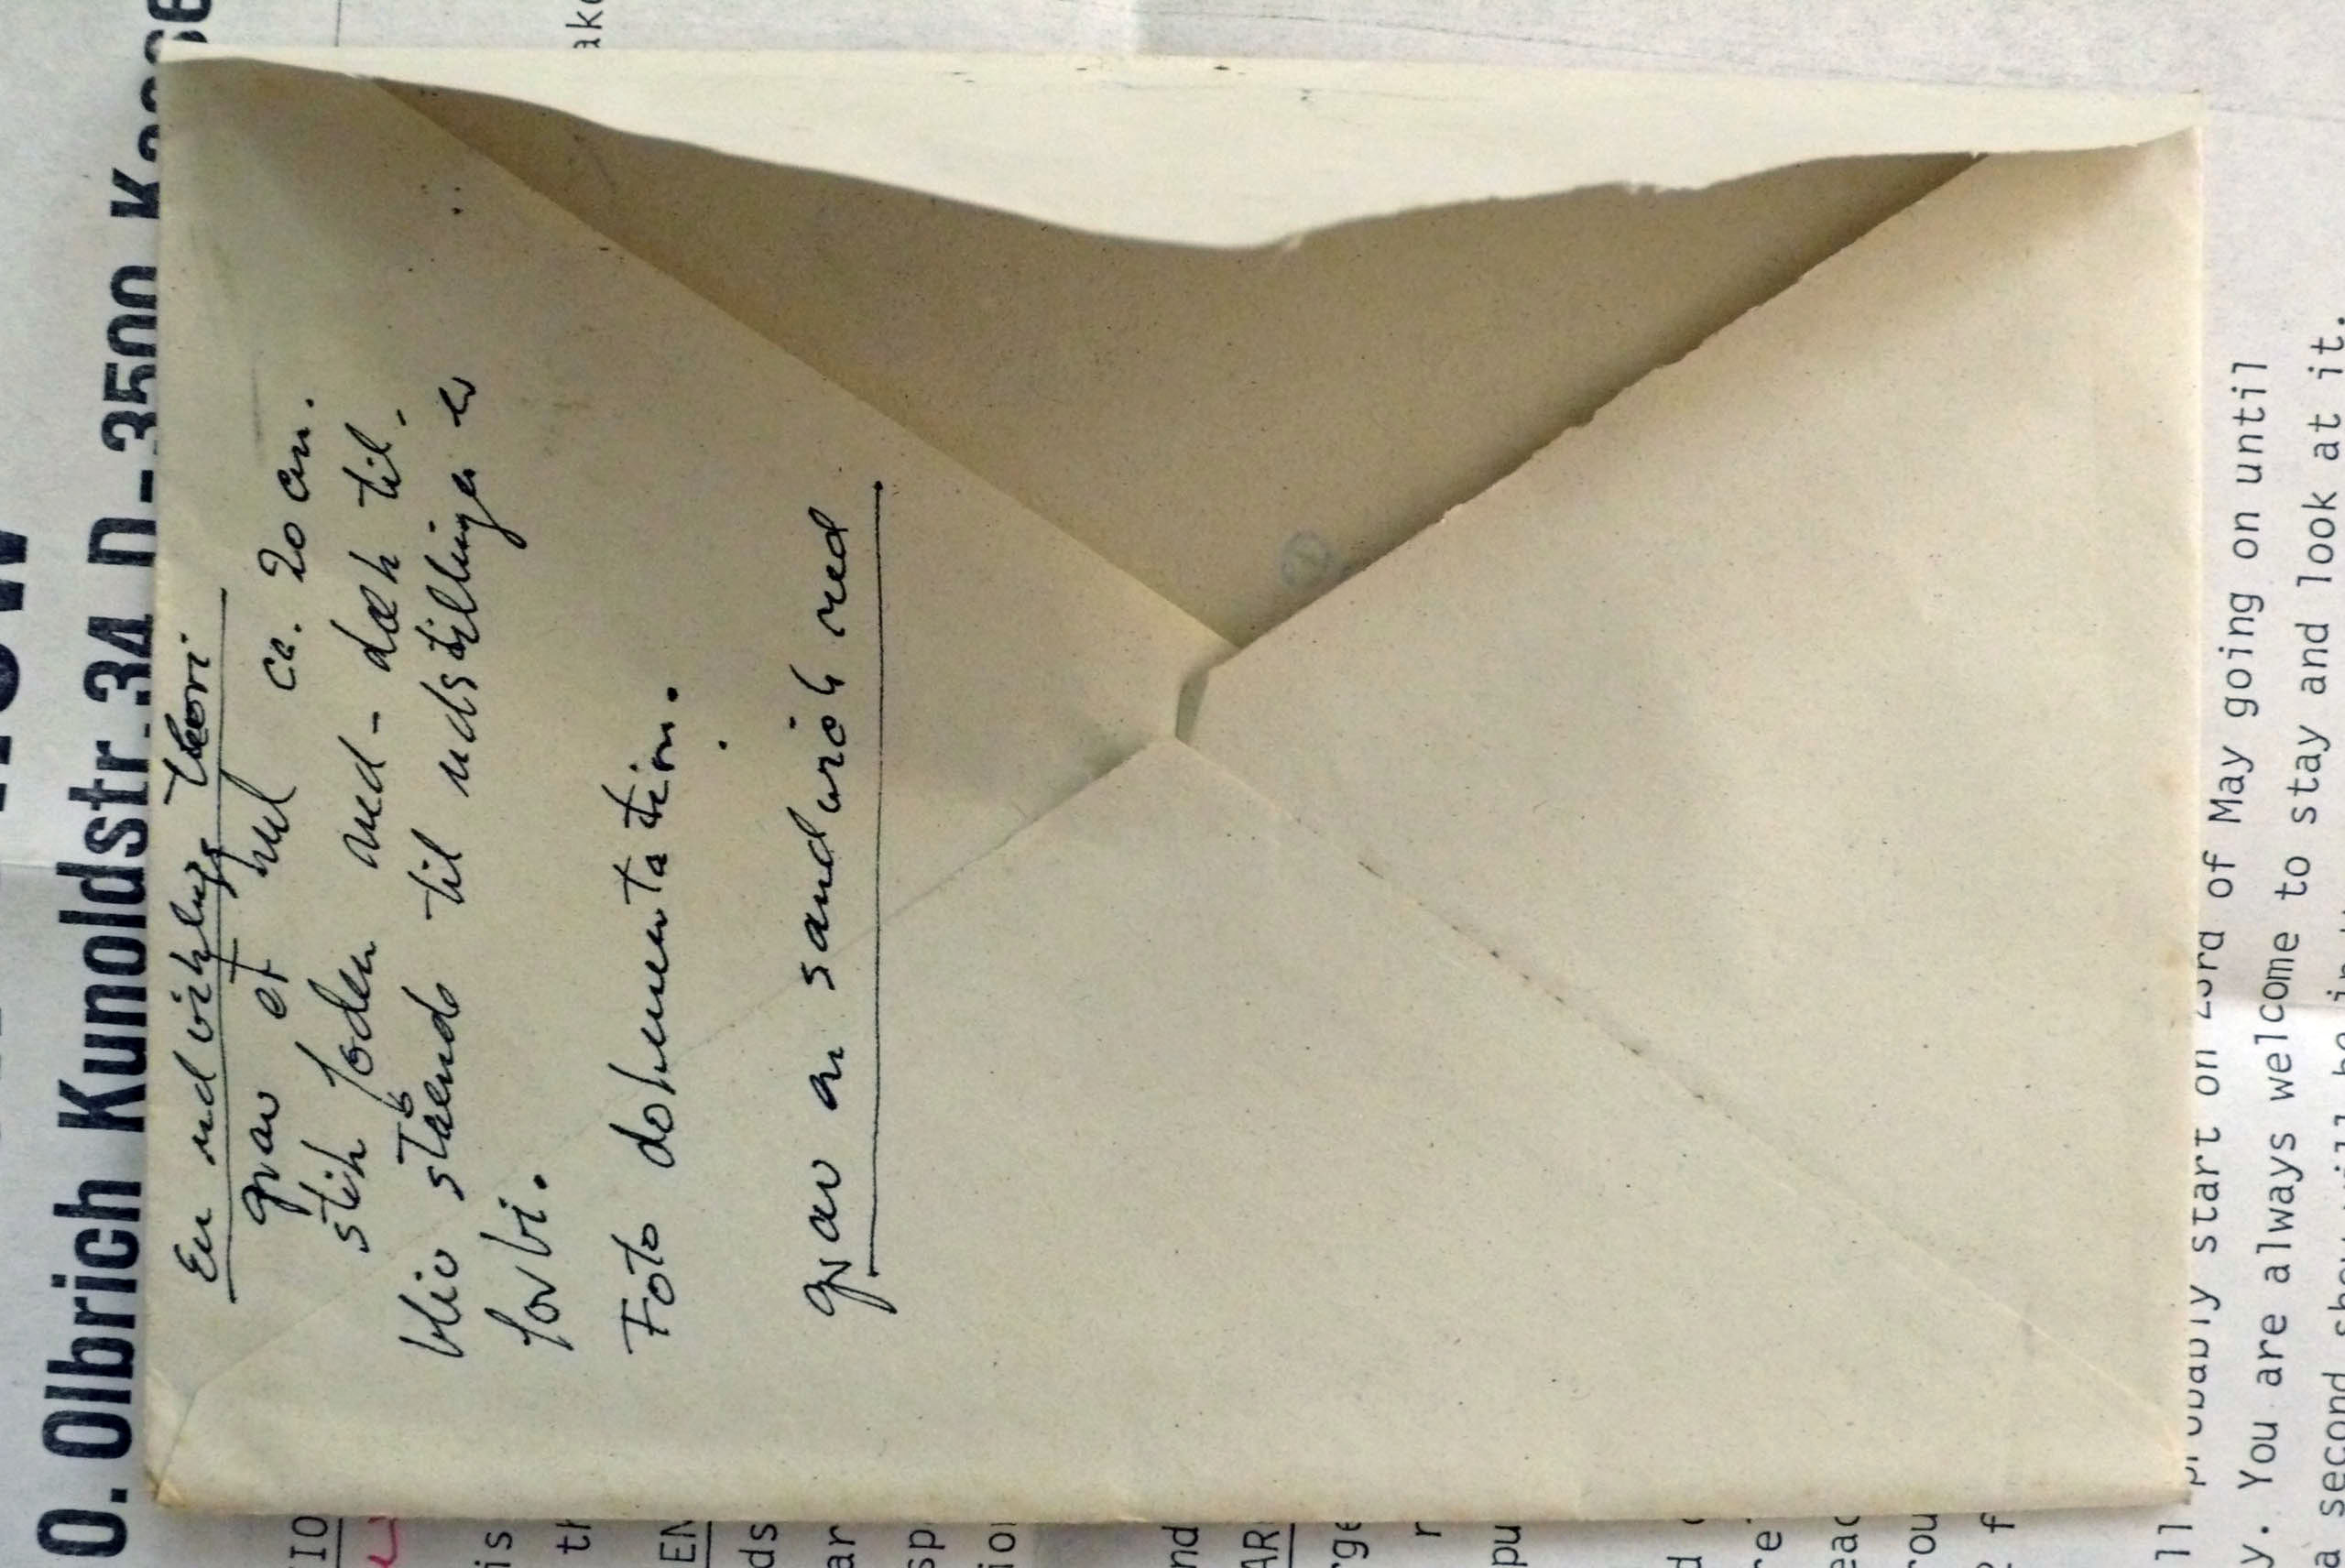 O. Olbrich Kunoldstr. 34 D-3500
En udviklings teori
grav et hul ca. 20 cm.
stik foden ned - dæk til.
bliv stående til udstillingen er
forbi.
Foto dokumentation.
grav en sandwich ned
probably start on 23rd of May going on until
y. You are always welcome to stay and look at it.
a second show will be